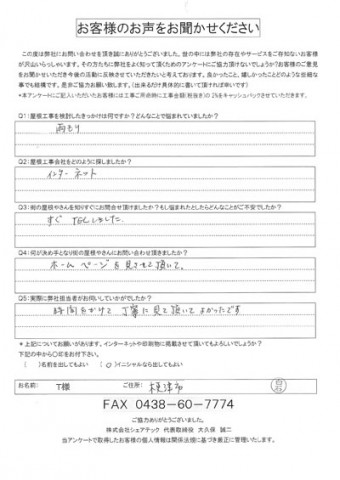 お客様のお声をお聞かせください
この度は弊社にお問い合わせを頂き誠にありがとうございました。世の中には弊社の存在やサービスをご存知ないお客様
が沢山いらっしゃいます。その方たちに弊社をよく知って頂くためのアンケートにご協力頂けないでしょうか?お客様のご意見
をお聞かせいただき今後の活動に反映させていただきたいと考えております。良かったこと、嬉しかったことどのような些細な
事でも結構です。是非ご協力お願い致します。(出来るだけ具体的に書いて頂ければ幸いです)
*本アンケートにご記入いただいたお客様には工事ご用命時に工事金額(税抜き)の2%をキャッシュバックさせていただきます。
Q1:屋根工事を検討したきっかけは何ですか?どんなことで悩まれていましたか?
雨もり
Q2:屋根工事会社をどのように探しましたか?
インターネット
Q3:街の屋根やさんを知りすぐにお問合せ頂けましたか?もし悩まれたとしたらどんなことがご不安でしたか?
すぐTELしました
Q4:何が決め手となり街の屋根やさんにお問い合わせ頂きましたか?
ホームページを見させて頂いて。
Q5:実際に弊社担当者がお伺いしていかがでしたか?
時間をかけて丁寧に見て頂いてよかったです
* 上記についてお願いがあります。インターネットや印刷物に掲載させて頂いてもよろしいでしょうか?
下記の中から○印をお付下さい。
( )名前を出してもよい (○)イニシャルなら出してもよい
お名前: T様 ご住所: 木更津市
FAX 0438-60-7774
ご協力ありがとうございました。
株式会社シェアテック 代表取締役 大久保 誠二
当アンケートで取得したお客様の個人情報は関係法規に基づき厳正に管理いたします。